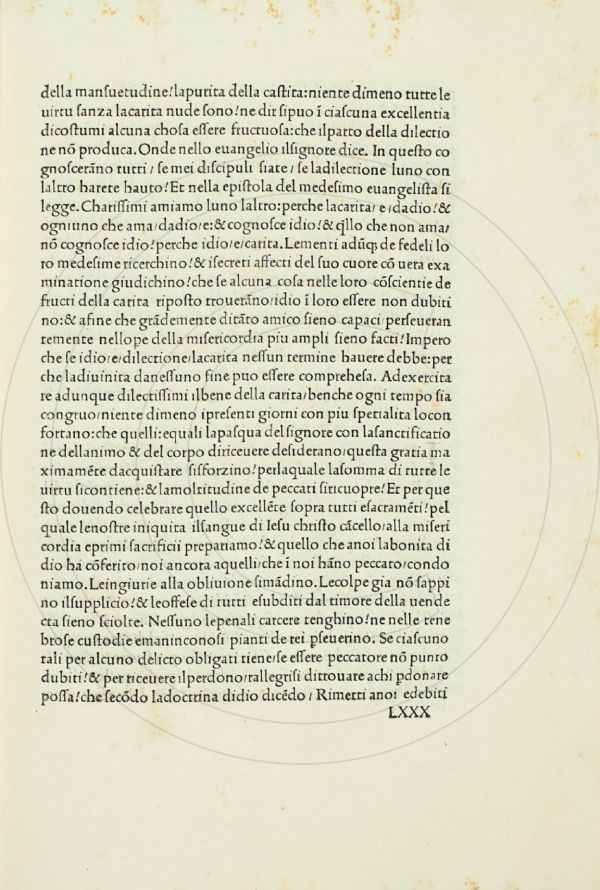 della manſuetudine!lapurita della caſtita:niente dimeno tutte le
uirtu ſanza lacarita nude ſono!ne dir ſipuo ī ciaſcuna excellentia
dicoſtumi alcuna choſa eſſere fructuoſa:che ilparto della dilectio
ne nō produca. Onde nello euangelio ilſignore dice. In queſto co
gnoſcerāno tutti / ſe mei diſcipuli ſiate / ſe ladilectione luno con
laltro harete hauto! Et nella epiſtola del medeſimo euangeliſta ſi
legge. Chariſſimi amiamo luno laltro: perche lacarita/e/dadio!&
ogniuno che ama/dadio/e:& cognoſce idio!& q̄llo che non ama/
nō cognoſce idio!perche idio/e/carita. Lementi adūq; de fedeli lo
ro medeſime ricerchino!& iſecreti affecti del ſuo cuore cō uera exa
minatione giudichino!che ſe alcuna coſa nelle loro cōſcientie de
fructi della carita ripoſto trouerāno/idio ī loro eſſere non dubiti
no:& afine che grādemente ditāto amico ſieno capaci perſeueran
temente nellope della miſericordia piu ampli ſieno facti! Impero
che ſe idio/e/dilectione/lacarita neſſun termine hauere debbe: per
che ladiuinita daneſſuno fine puo eſſere compreheſa. Adexercita
re adunque dilectiſſimi ilbene della carita/benche ogni tempo ſia
congruo/niente dimeno ipreſenti giorni con piu ſpetialita locon
fortano:che quelli:equali lapaſqua del ſignore con laſanctificatio
ne dellanimo & del corpo diriceuere deſiderano/queſta gratia ma
ximamēte dacquiſtare ſiſforzino!perlaquale laſomma di tutte le
uirtu ſicontiene:& lamoltitudine de peccati ſiricuopre! Et per que
ſto douendo celebrare quello excellēte ſopra tutti eſacramēti!pel
quale lenoſtre iniquita ilſangue di Ieſu chriſto cācello/alla miſeri
cordia eprimi ſacrificii prepariamo!& quello che anoi labonita di
dio ha cōferito/noi ancora aquelli/che ī noi hāno peccato/condo
niamo. Leingiurie alla obliuione ſimādino. Lecolpe gia nō ſappi
no ilſupplicio!& leoffeſe di tutti eſubditi dal timore della uende
cta ſieno ſciolte. Neſſuno lepenali carcere tenghino!ne nelle tene
broſe cuſtodie emaninconoſi pianti de rei pſeuerino. Se ciaſcuno
tali per alcuno delicto obligati tiene/ſe eſſere peccatore nō punto
dubiti!& per riceuere ilperdono/rallegriſi ditrouare achi pdonare
poſſa!che ſecōdo ladoctrina didio dicēdo / Rimetti anoi edebiti
LXXX